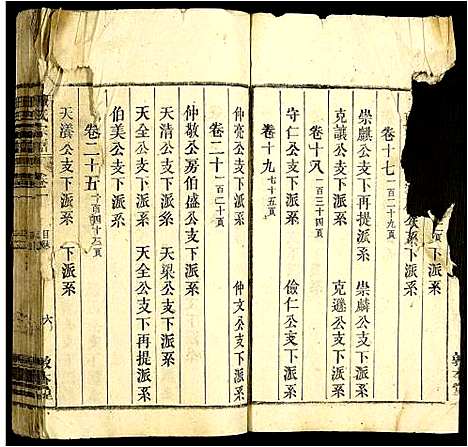 下派系
下派系
卷十七 一百二十九頁
崇麒公支下再提派系　崇麟公支下派系
克議公支下派系　克遜公支下派系
卷十八 一百三十四頁
守仁公支下派系　儉仁公支下派系
卷十九 七十五頁
仲亮公支下派系　仲文公支下派系
卷二十 一百二十頁
仲敬公房伯盛公支下派系
天清公支下派系　天梁公支下派系
天全公支下派系　天全公支下再提派系
伯美公支下派系
卷二十五 一百四十三頁
天漢公支下派系　下派系
目錄
六
敦本堂
敦本堂